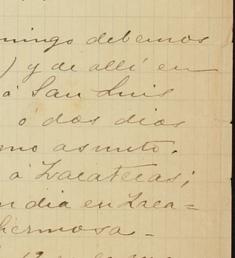 mingo debemos
) y de allí en
á San Luis
ó dos dias
mo asunto.
á Zacatecas;
n dia en Zaca=
hermosa-